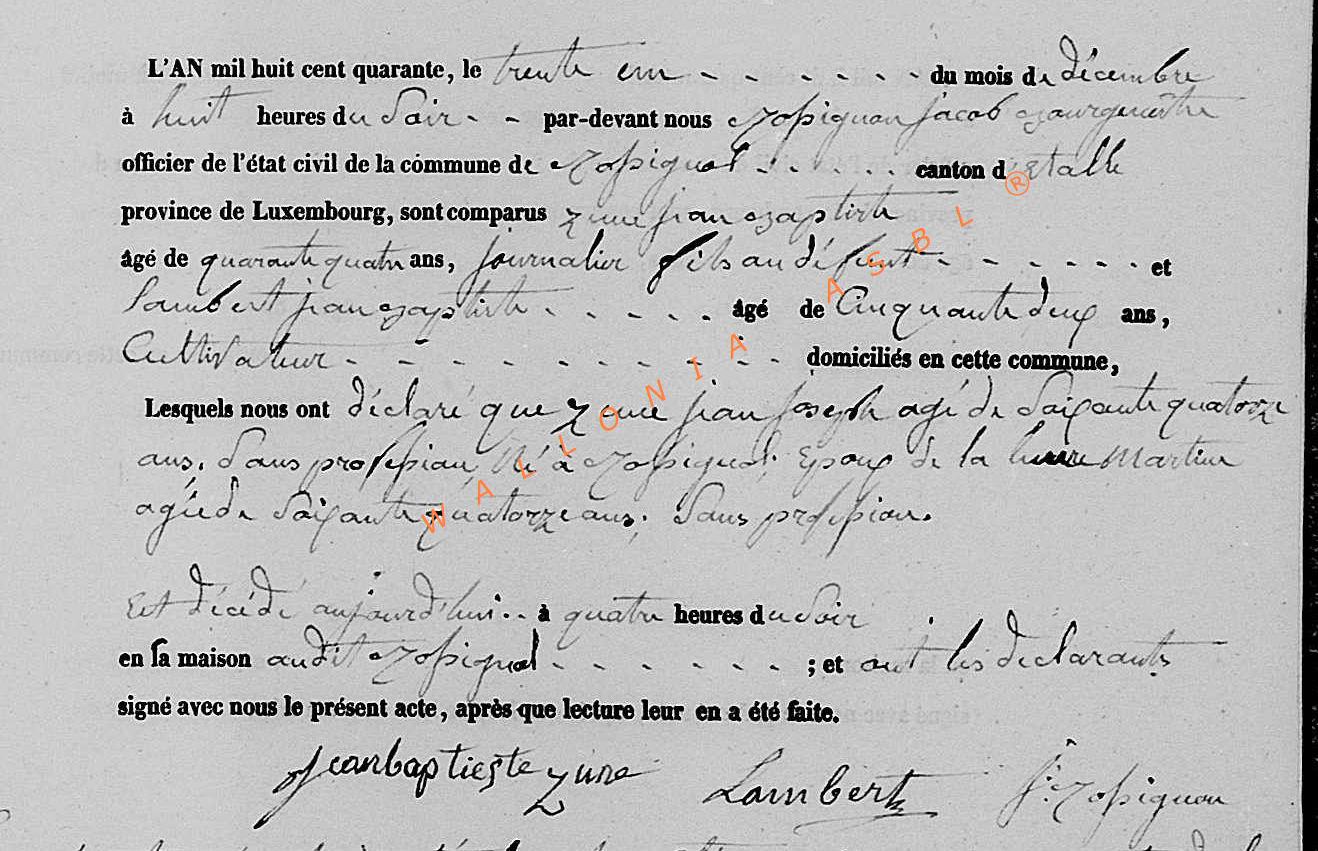 L'AN mil huit cent quarante, le trente un - - - - - - du mois de décembre
à huit heures du Soir - - par-devant nous Rossignon jacob Bourguemetre
officier de l'état civil de la commune de Rossignol - - - - - - canton d'Etalle
province de Luxembourg, sont comparus Zune jean Baptiste
âgé de quarante quatre ans, journalier fils au défunt - - - - - - et
Lambert jean Baptiste - - - - - âgé de Cinquante deux ans,
Cultivateur - - - - - - - - - domiciliés en cette commune,
Lesquels nous ont déclaré que Zune jean joseph agé de Soixante quatorze
ans. Sans profession Né à Rossignol; Epoux de la Martine
agée de Soixante quatorze ans. Sans profession.
Est décédé aujourd'hui - - à quatre heures du Soir
en sa maison audit Rossignol - - - - - - - ; et ont les déclarants
signé avec nous le présent acte, après que lecture leur en a été faite.
Jeanbaptieste Zune Lambert J. Rossignon
WALLONIA ASBL ®